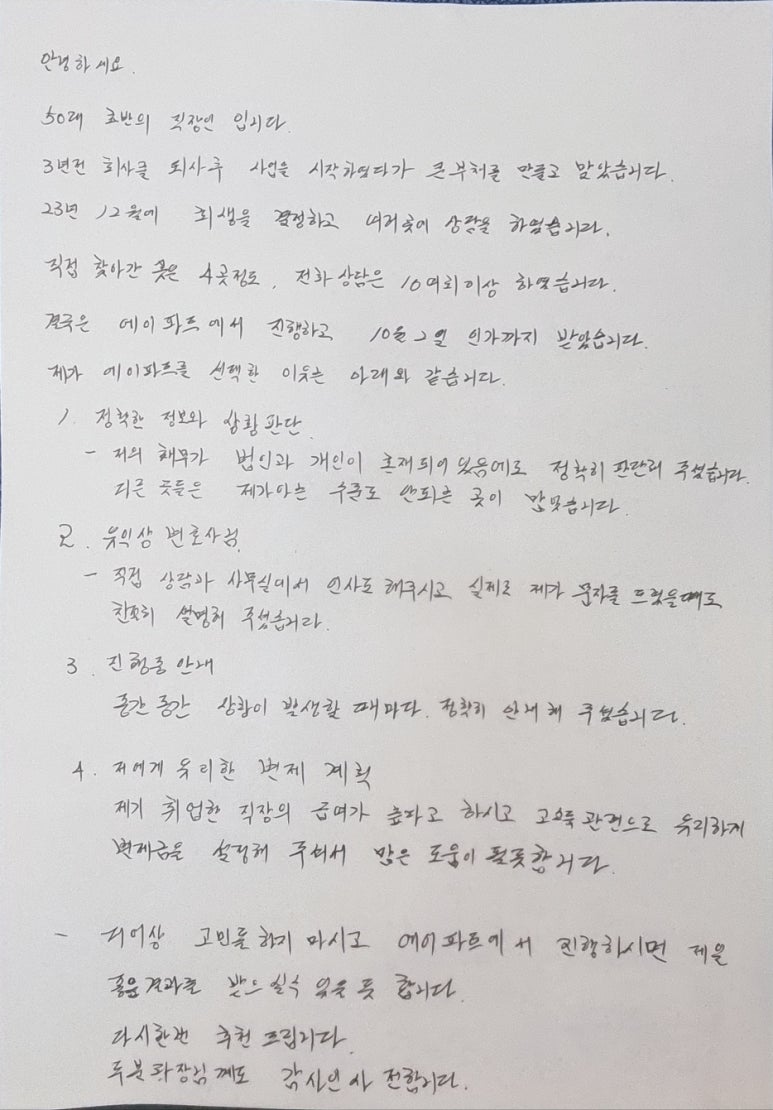 안녕하세요.
50대 초반의 직장인 입니다.
3년전 회사를 퇴사후 사업을 시작하였다가 큰부채를 만들고 말았습니다.
23년 12월에 회생을 결정하고 여러곳에 상담을 하였습니다.
직접 찾아간 곳은 4곳정도, 전화상담은 10여회이상 하였습니다.
결국은 에이파트에서 진행하고 10월 2일 인가까지 받았습니다.
제가 에이파트를 선택한 이유는 아래와 같습니다.
1. 정확한 정보와 상황판단.
- 저의 채무가 법인과 개인이 혼재되어 있음에도 정확히 판단해 주셨습니다.
다른 곳들은 제가아는 수준도 안되는 곳이 많았습니다.
2. 유익상 변호사님.
- 직접 상담과 사무실에서 인사도 해주시고 실제로 제가 문자를 드렸을때도
친절히 설명해 주셨습니다.
3. 진행중 안내
중간 중간 상황이 발생할 때마다. 정확히 안내해 주셨습니다.
4. 저에게 유리한 변제 계획
제가 취업한 직장의 급여가 높다고 하시고 유리하게
변제금을 설정해 주셔서 많은 도움이 될듯합니다.
- 더이상 고민을하지 마시고 에이파트에서 진행하시면 제일
좋은결과를 받으실수 있을 듯 합니다.
다시한번 추천 드립니다.
두분 과장님께도 감사인사 전합니다.